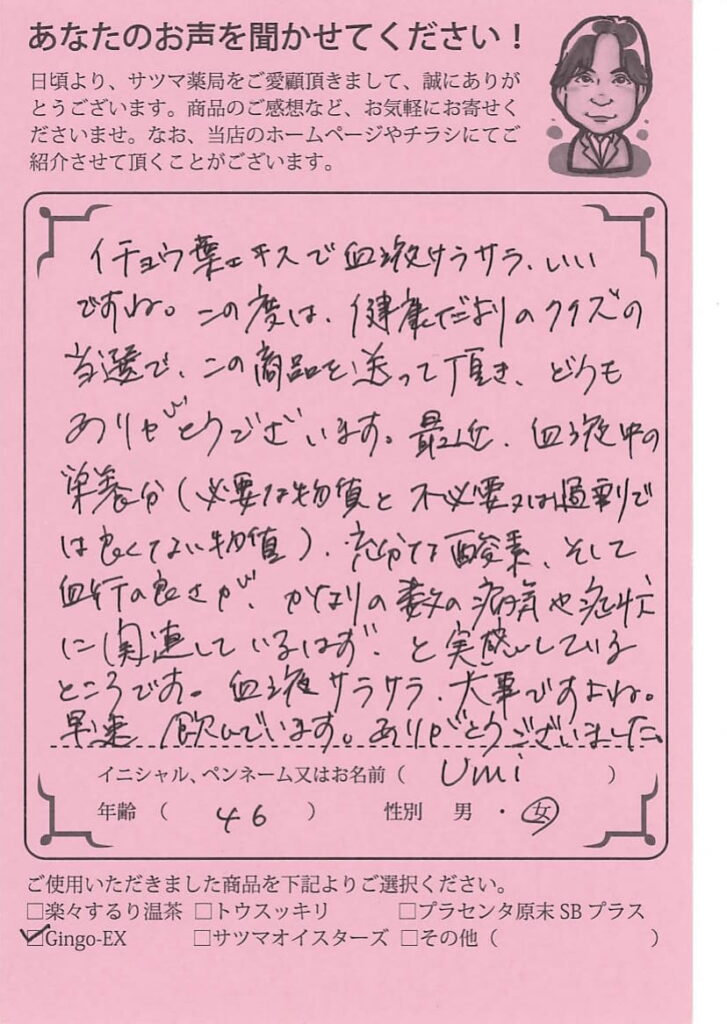 あなたのお声を聞かせてください！
日頃より、サツマ薬局をご愛顧頂きまして、誠にありが
とうございます。商品のご感想など、お気軽にお寄せく
ださいませ。なお、当店のホームページやチラシにてご
紹介させて頂くことがございます。
イチョウ葉エキスで血液サラサラ、いい
ですね。この度は、健康だよりのクイズの
当選で、この商品を送って頂き、どうも
ありがとうございます。最近、血液中の
栄養分（必要な物質と不必要又は過剰で
は良くない物質）、充分な酸素、そして
血行の良さが、かなりの数の病気や症状
に関連しているはず、と実感している
ところです。血液サラサラ、大事ですよね。
早速飲んでいます。ありがとうございました
イニシャル、ペンネーム又はお名前（ Umi ）
年齢（ 46 ） 性別 男 ・ 女
ご使用いただきました商品を下記よりご選択ください。
□楽々するり温茶 □トウスッキリ □プラセンタ原末SBプラス
☑Gingo-EX □サツマオイスターズ □その他（ ）